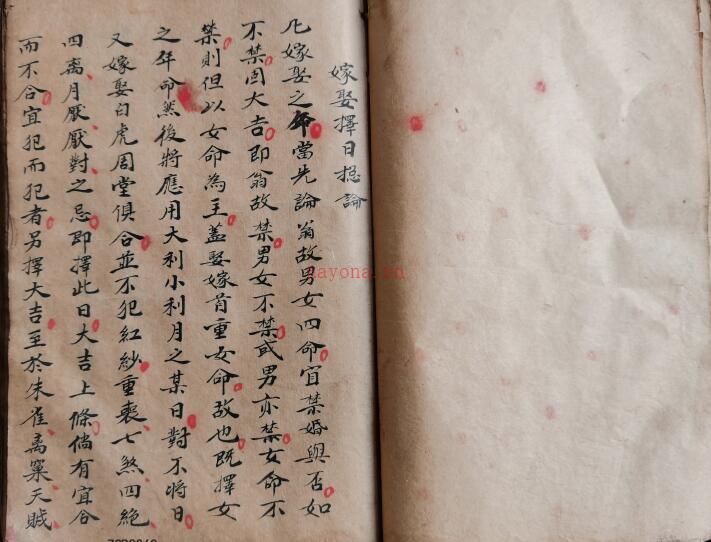 嫁娶擇日捴論
凡嫁娶之年當先論翁故男女四命宜禁婚與否如
不禁固大吉即翁故禁男女不禁或男亦禁女命不
禁則但以女命為主蓋娶嫁首重女命故也既擇女
之年命然後將應用大利小利月之某日對不將日
又嫁娶白虎周堂俱合並不犯紅紗重喪七煞四絕
四离月厭厭對之忌即擇此日大吉上條倘有宜合
而不合宜犯而犯者另擇大吉至於朱雀离窠天賊